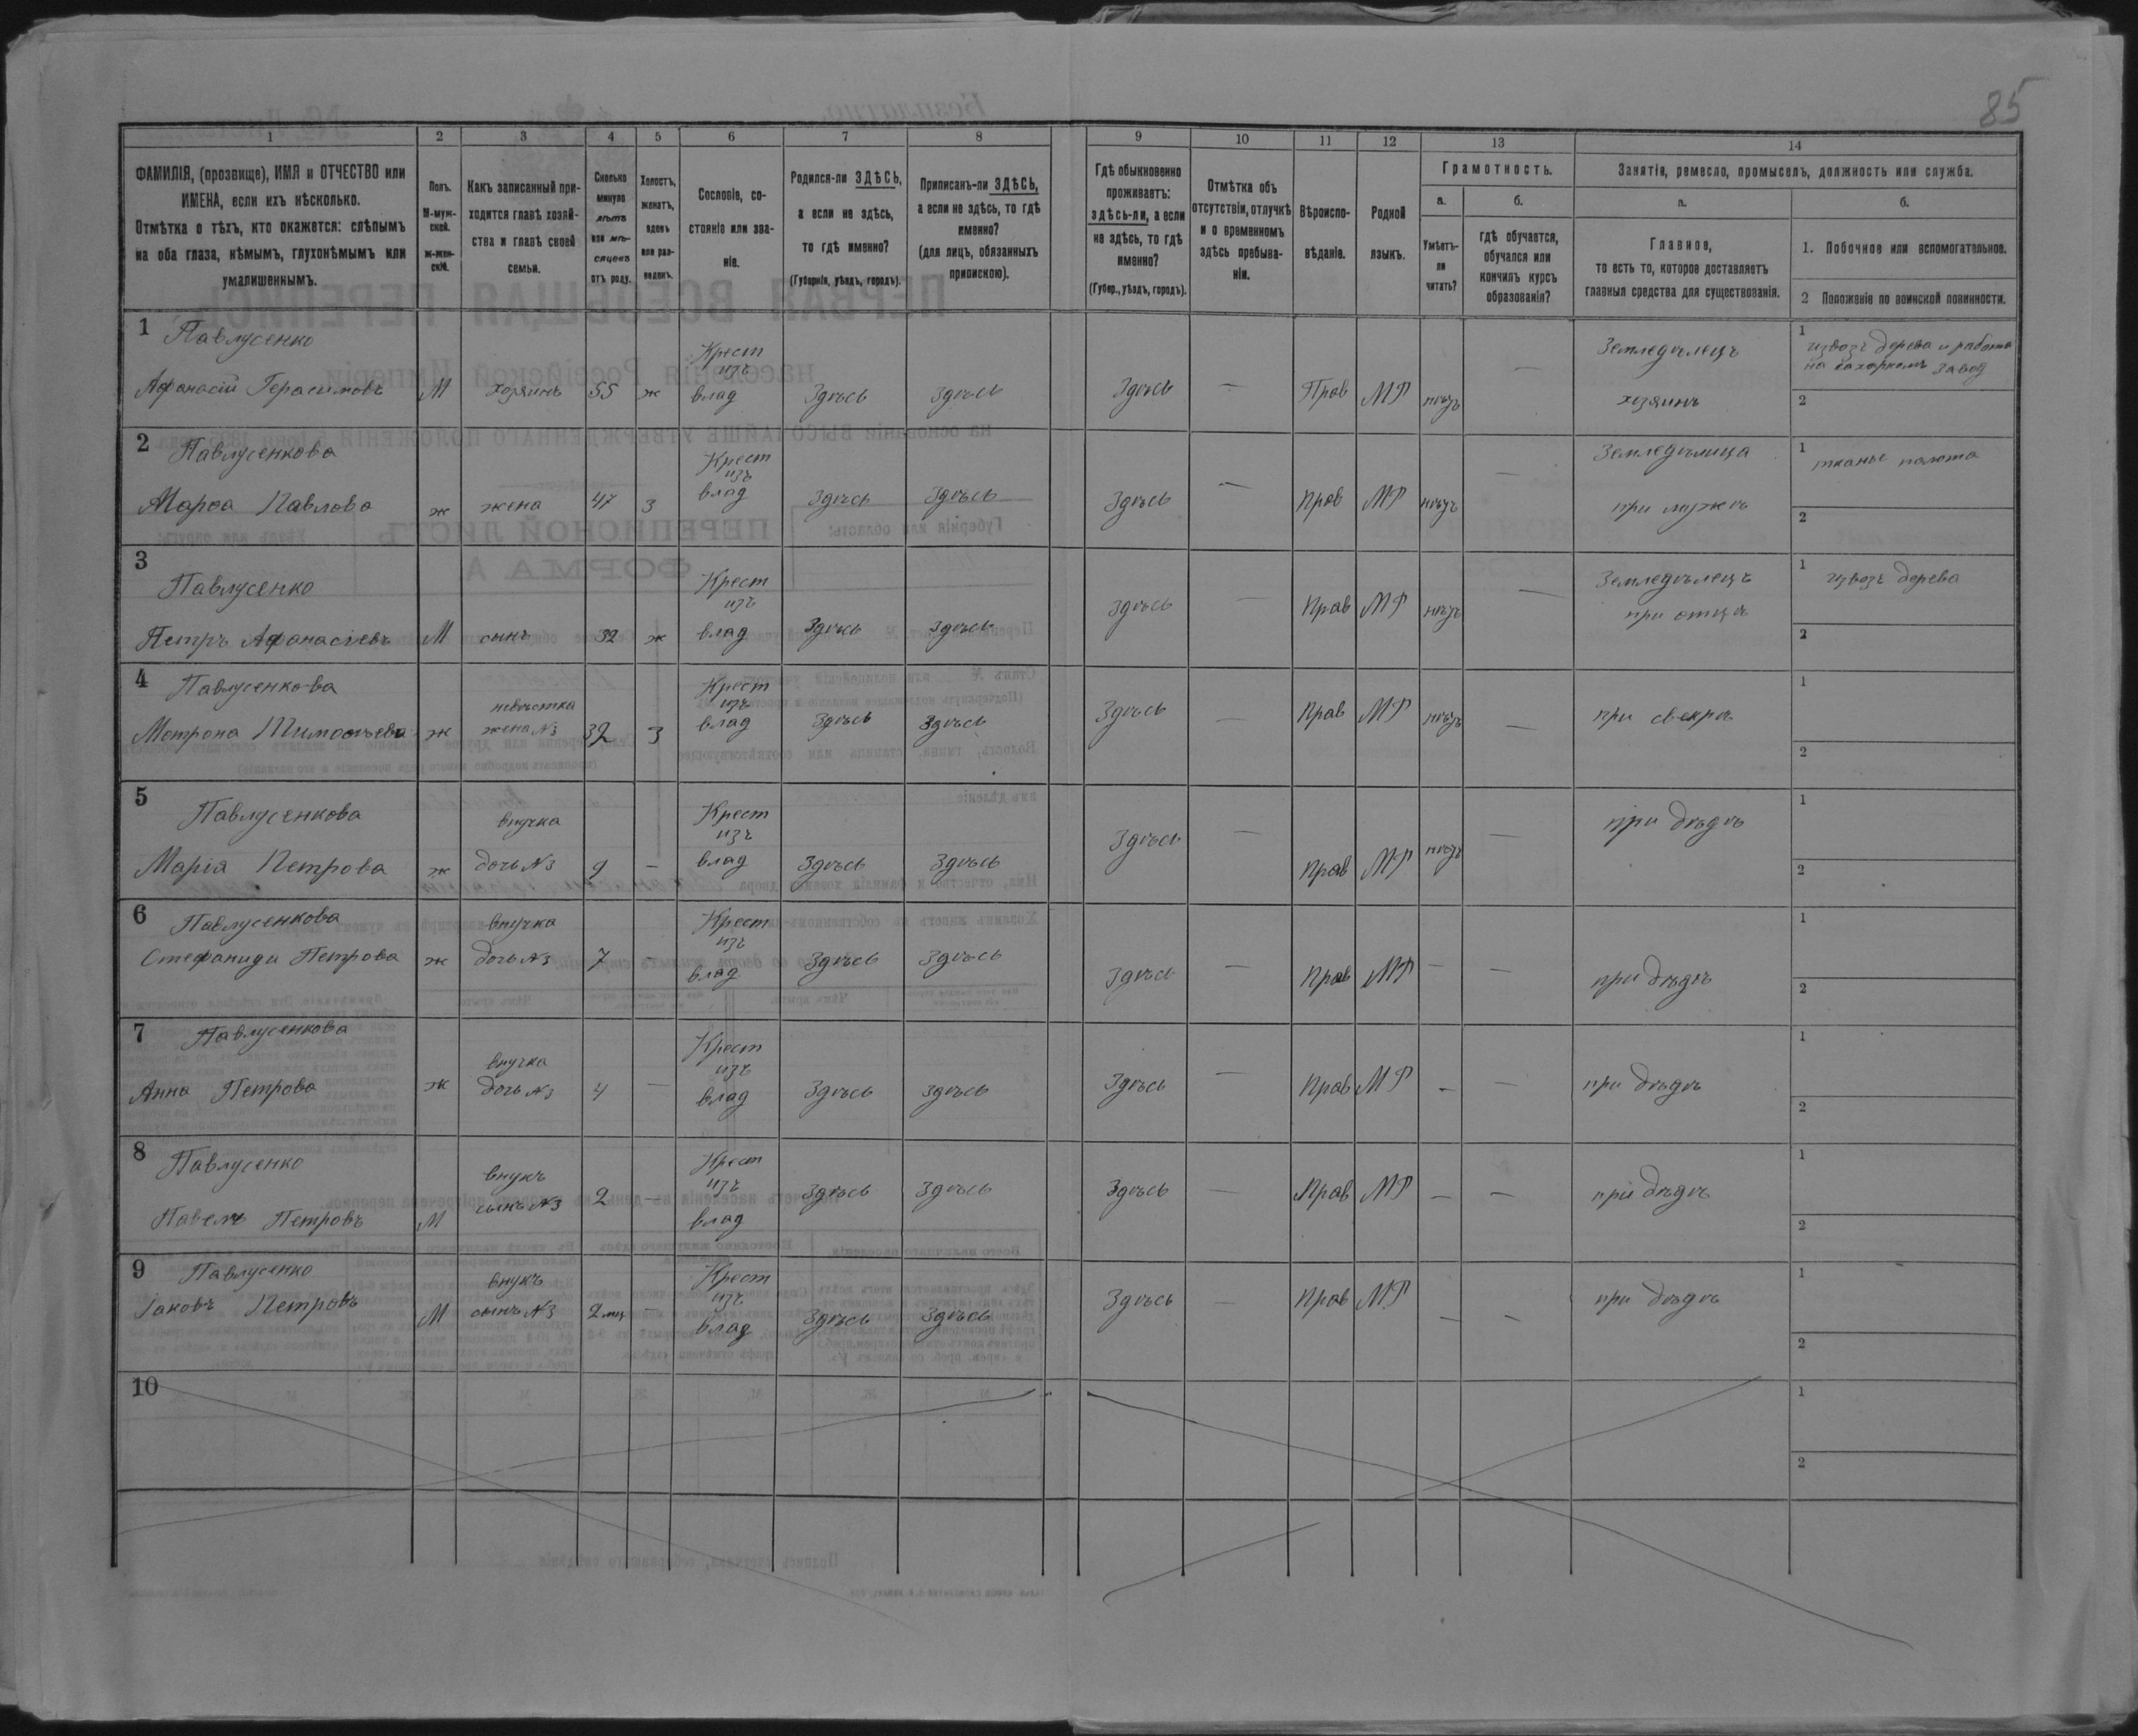 85
1 2 3 4 5 6 7 8 9 10 11 12 13 14
ФАМИЛІЯ, (прозвище), ИМЯ и ОТЧЕСТВО или ИМЕНА, если ихъ нѣсколько.
Отмѣтка о тѣхъ, кто окажется: слѣпымъ на оба глаза, нѣмымъ, глухонѣмымъ или умалишеннымъ.
Полъ. М-муж-ской. ж-жен-скій.
Какъ записанный при-ходится главѣ хозяй-ства и главѣ своей семьи.
Сколько минуло лѣтъ или мѣ-сяцевъ отъ роду.
Холостъ, женатъ, вдовъ или раз-веденъ.
Сословіе, со-стояніе или зва-ніе.
Родился-ли ЗДѢСЬ, а если не здѣсь, то гдѣ именно? (Губернія, уѣздъ, городъ).
Приписанъ-ли ЗДѢСЬ, а если не здѣсь, то гдѣ именно? (для лицъ, обязанныхъ припискою).
Гдѣ обыкновенно проживаетъ: здѣсь-ли, а если не здѣсь, то гдѣ именно? (Губер., уѣздъ, городъ).
Отмѣтка объ отсутствіи, отлучкѣ и о временномъ здѣсь пребыва-ніи.
Вѣроиспо-вѣданіе.
Родной языкъ.
Грамотность.
а. Умѣетъ-ли читать?
б. гдѣ обучается, обучался или кончилъ курсъ образованія?
Занятія, ремесло, промыселъ, должность или служба.
а. Главное, то есть то, которое доставляетъ главныя средства для существованія.
б. 1. Побочное или вспомогательное.
2 Положеніе по воинской повинности.
1 Павлусенко
Афанасій Герасимовъ М хозяинъ 55 ж Крест изъ влад Здѣсь Здѣсь Здѣсь — Прав МР нѣтъ — Земледѣлецъ хозяинъ 1 извозъ дерева и работа на сахарномъ завод 2
2 Павлусенкова
Марѳа Павлова ж жена 47 з Крест изъ влад Здѣсь Здѣсь Здѣсь — Прав МР нѣтъ — Земледѣлица при мужѣ 1 тканье полота 2
3 Павлусенко
Петръ Афанасіевъ М сынъ 32 ж Крест изъ влад Здѣсь Здѣсь Здѣсь — Прав МР нѣтъ — Земледѣлецъ при отцѣ 1 извозъ дерева 2
4 Павлусенкова
Мотрона Тимоѳѣева ж невѣстка жена №3 32 з Крест изъ влад Здѣсь Здѣсь Здѣсь — Прав МР нѣтъ — при свекрѣ 1 2
5 Павлусенкова
Марія Петрова ж внучка дочь №3 9 — Крест изъ влад Здѣсь Здѣсь Здѣсь — Прав МР нѣтъ — при дѣдѣ 1 2
6 Павлусенкова
Стефанида Петрова ж внучка дочь №3 7 — Крест изъ влад Здѣсь Здѣсь Здѣсь — Прав МР — — при дѣдѣ 1 2
7 Павлусенкова
Анна Петрова ж внучка дочь №3 4 — Крест изъ влад Здѣсь Здѣсь Здѣсь — Прав МР — — при дѣдѣ 1 2
8 Павлусенко
Павелъ Петровъ М внукъ сынъ №3 2 — Крест изъ влад Здѣсь Здѣсь Здѣсь — Прав МР — — при дѣдѣ 1 2
9 Павлусенко
Іаковъ Петровъ М внукъ сынъ №3 2 мц — Крест изъ влад Здѣсь Здѣсь Здѣсь — Прав МР — — при дѣдѣ 1 2
10 1 2